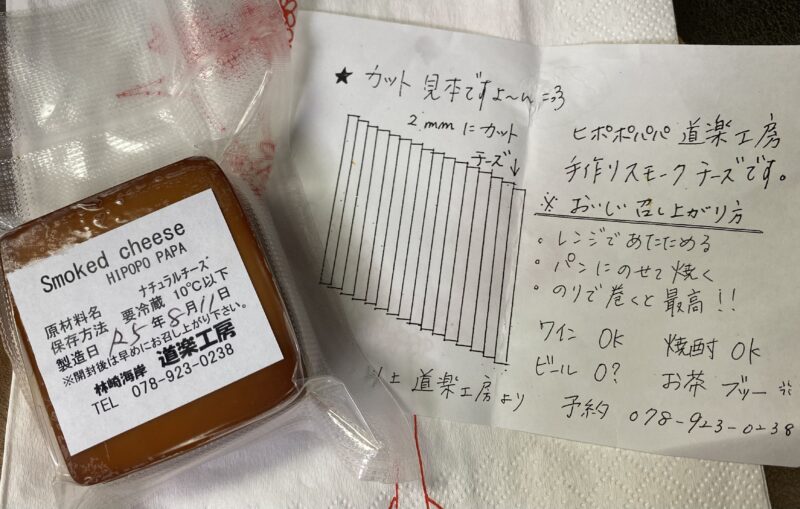 Smoked cheese
HIPOPO PAPA
原材料名 ナチュラルチーズ
保存方法 要冷蔵 10℃以下
製造日 R5年8月11日
※開封後は早めにお召し上がり下さい。
林崎海岸 道楽工房
TEL 078-923-0238
★ カット見本ですよ〜ん
2mmにカット
チーズ↓
以上 道楽工房より
ヒポポパパ 道楽工房
手作りスモークチーズです。
※ おいしい召し上がり方
・レンジであたためる
・パンにのせて焼く
・のりで巻くと最高!!
ワイン OK 焼酎 OK
ビール O? お茶 ブッー
予約 078-923-0238